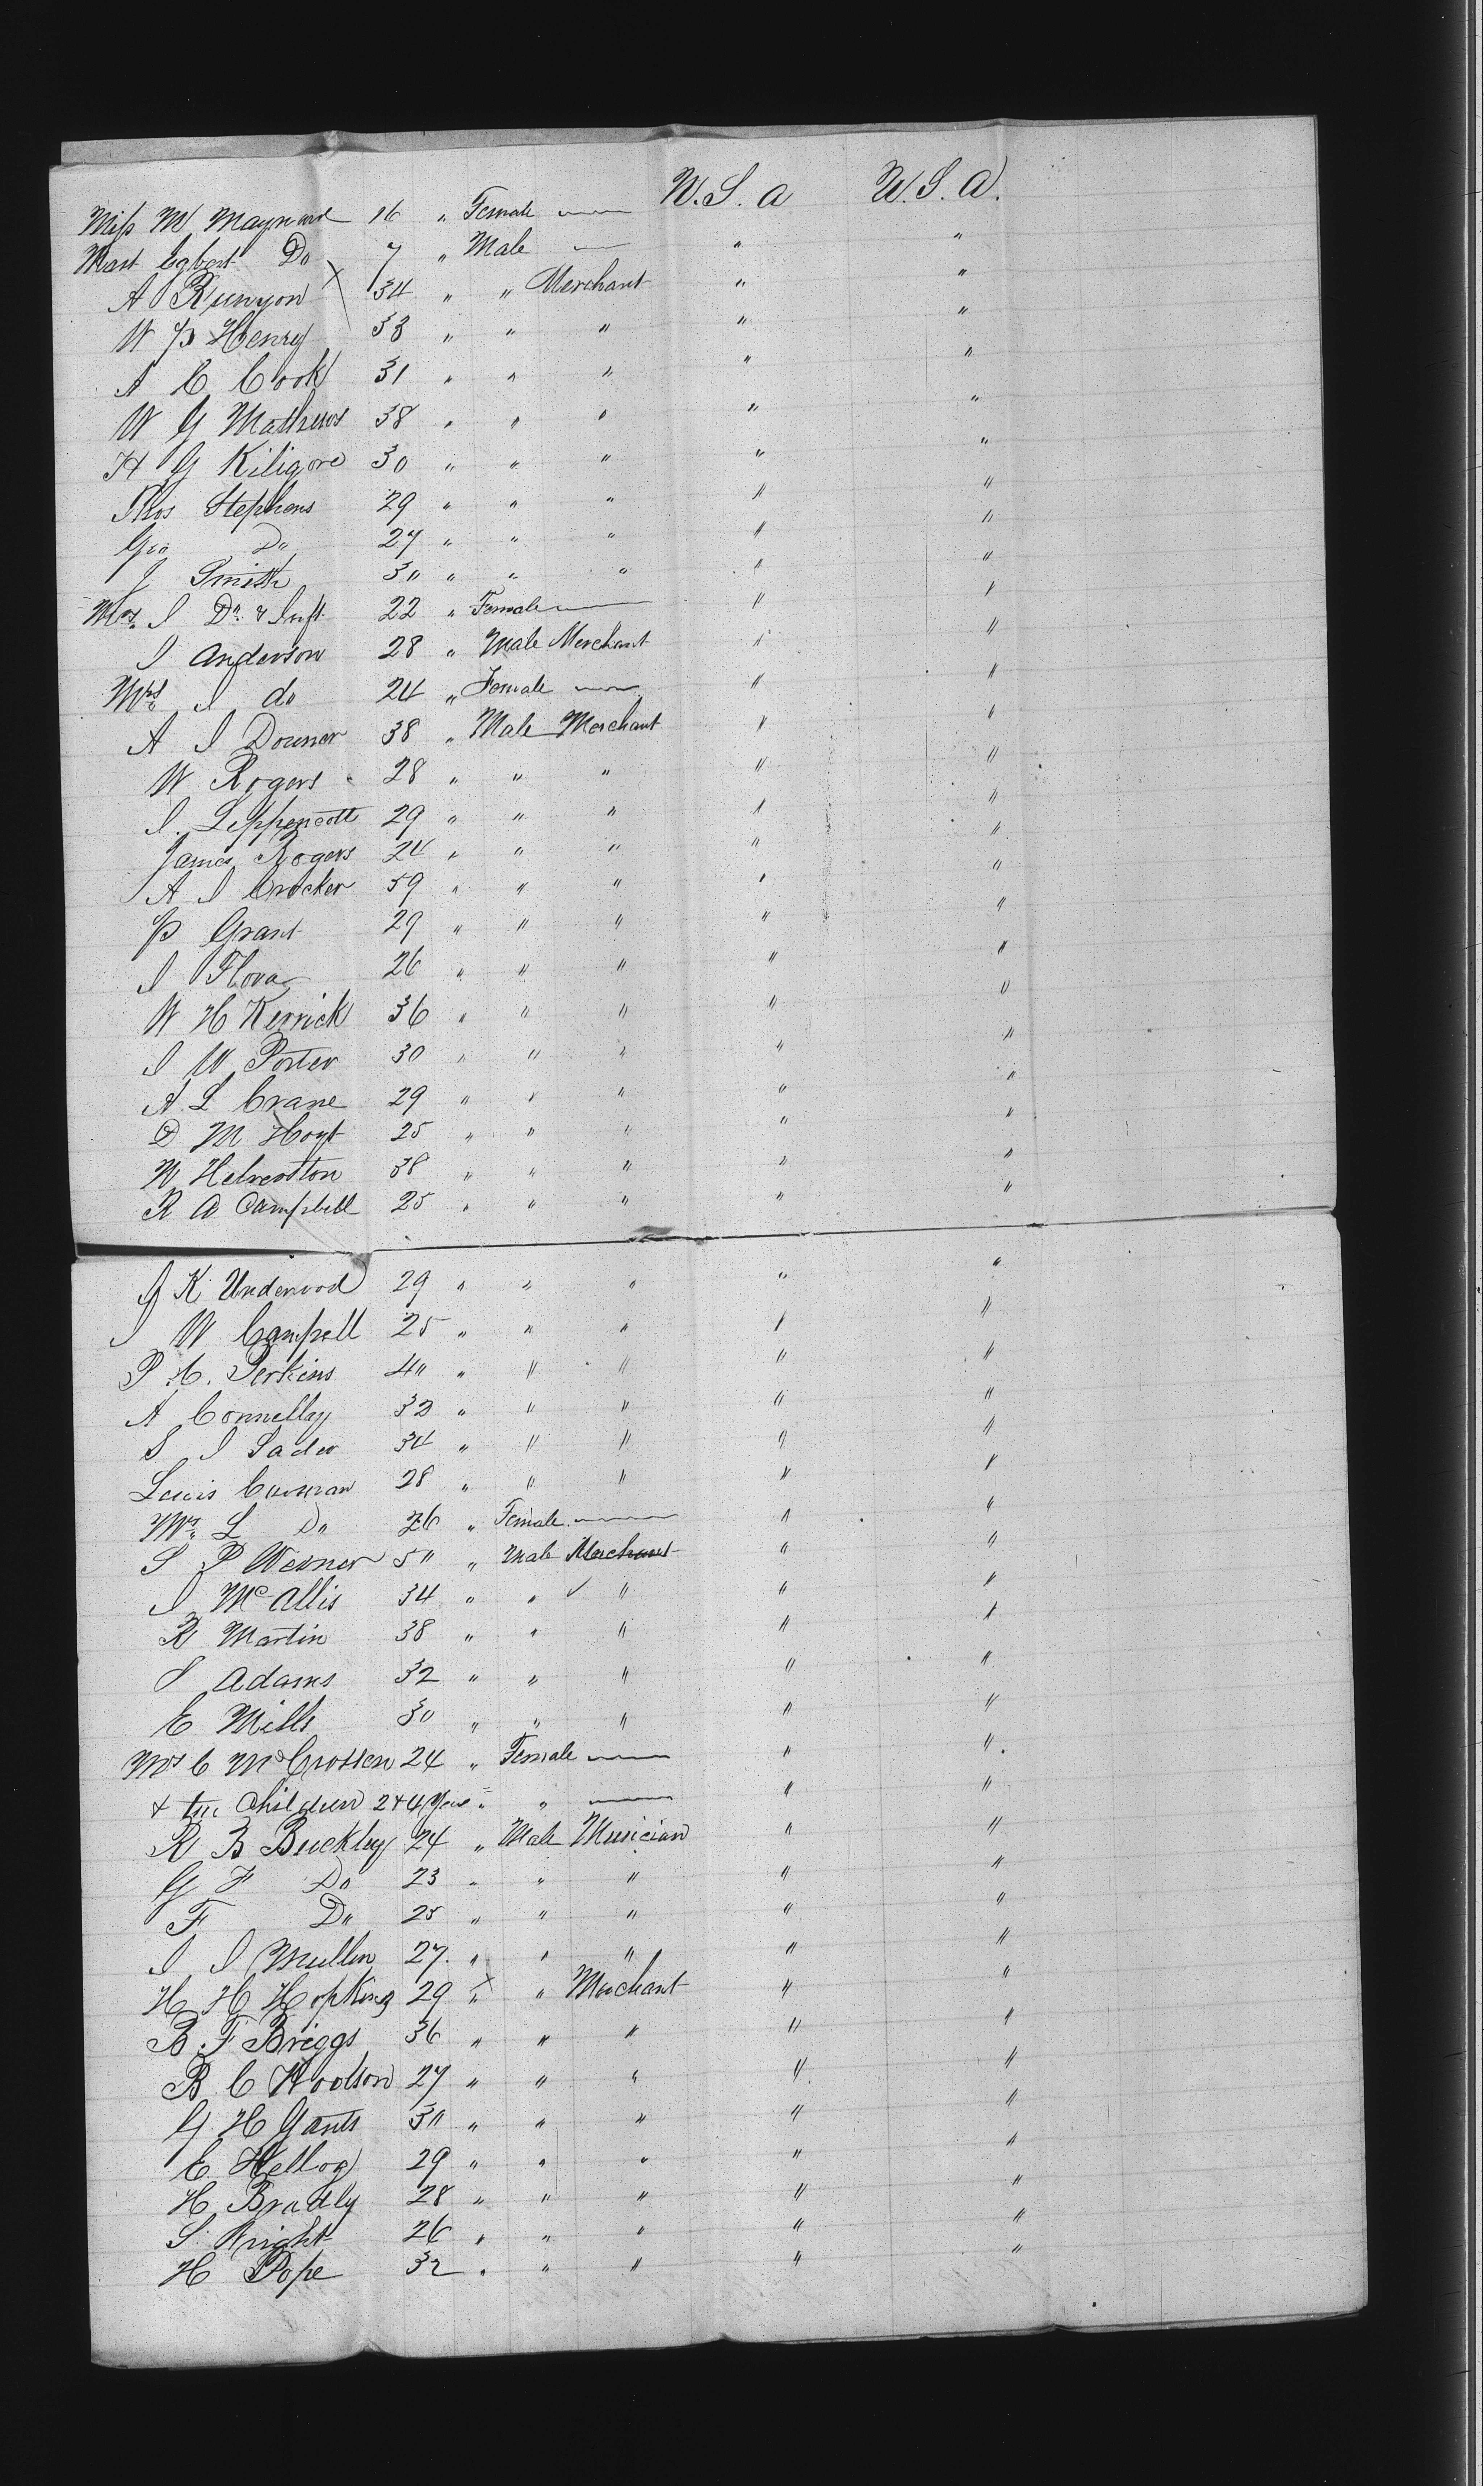 Miss M Maynard 16 " Female — U.S.A U.S.A.
Mast Egbert Do 7 " Male — " "
A Runyon 34 " " Merchant " "
W P Henry 33 " " " " "
A C Cook 31 " " " " "
W G Mathews 38 " " " " "
H G Kiligore 30 " " " " "
Thos Stephens 29 " " " " "
Geo Do 27 " " " " "
J Smith 30 " " " " "
Mrs J Do & Inft 22 " Female — " "
J Anderson 28 " Male Merchant " "
Mrs J do 24 " Female — " "
A J Downer 38 " Male Merchant " "
W Rogers 28 " " " " "
J. Leppencott 29 " " " " "
James Rogers 24 " " " " "
A J Crocker 59 " " " " "
P Grant 29 " " " " "
J 26 " " " " "
W H Kerrick 36 " " " " "
J W Porter 30 " " " " "
A L Crane 29 " " " " "
D M Hoyt 25 " " " " "
W Helverston 38 " " " " "
R A Campbell 25 " " " " "
J K Underwood 29 " " " " "
J W Campell 25 " " " " "
P. C. Perkins 40 " " " " "
A Connellay 32 " " " " "
S J Sader 34 " " " " "
Lewis 28 " " " " "
Mrs L Do 26 " Female — " "
S P Werner 50 " Male Merchant " "
J McAllis 34 " " " " "
R Martin 38 " " " " "
S Adams 32 " " " " "
E Mills 30 " " " " "
Mrs C McCrossen 24 " Female — " "
& two Children 2 & 4 Years " " — " "
R B Buckley 24 " Male Musician " "
G F Do 23 " " " " "
F Do 25 " " " " "
J J Mullen 27. " " " " "
H H Hopkins 29 " " Merchant " "
B F Briggs 36 " " " " "
B C Woodson 27 " " " " "
G H Gants 30 " " " " "
E Kellog 29 " " " " "
H Bradly 28 " " " " "
S. Wright 26 " " " " "
H Pope 32 " " " " "